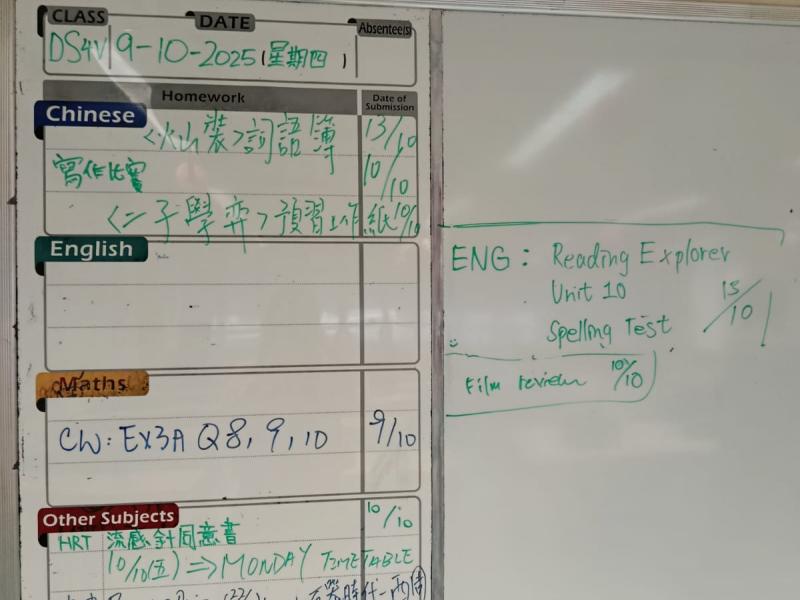 CLASS
DATE
Absentee(s)
DS4V 9-10-2025 (星期四)
Homework
Date of Submission
Chinese
<火山裝>詞語簿 13/10
寫作比賽 10/10
<二子學弈>預習工作紙 10/10
English
Maths
CW: EX3A Q8, 9, 10 9/10
Other Subjects
HRT 流感針同意書 10/10
10/10(五) => MONDAY TIMETABLE
ENG: Reading Explorer
Unit 10
Spelling Test
/10
Film review 10/10